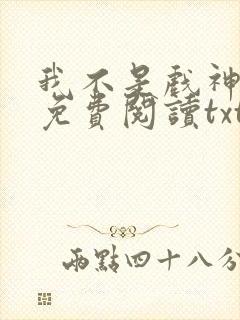 我不是戲神
免費閱讀txt
兩點四十八分